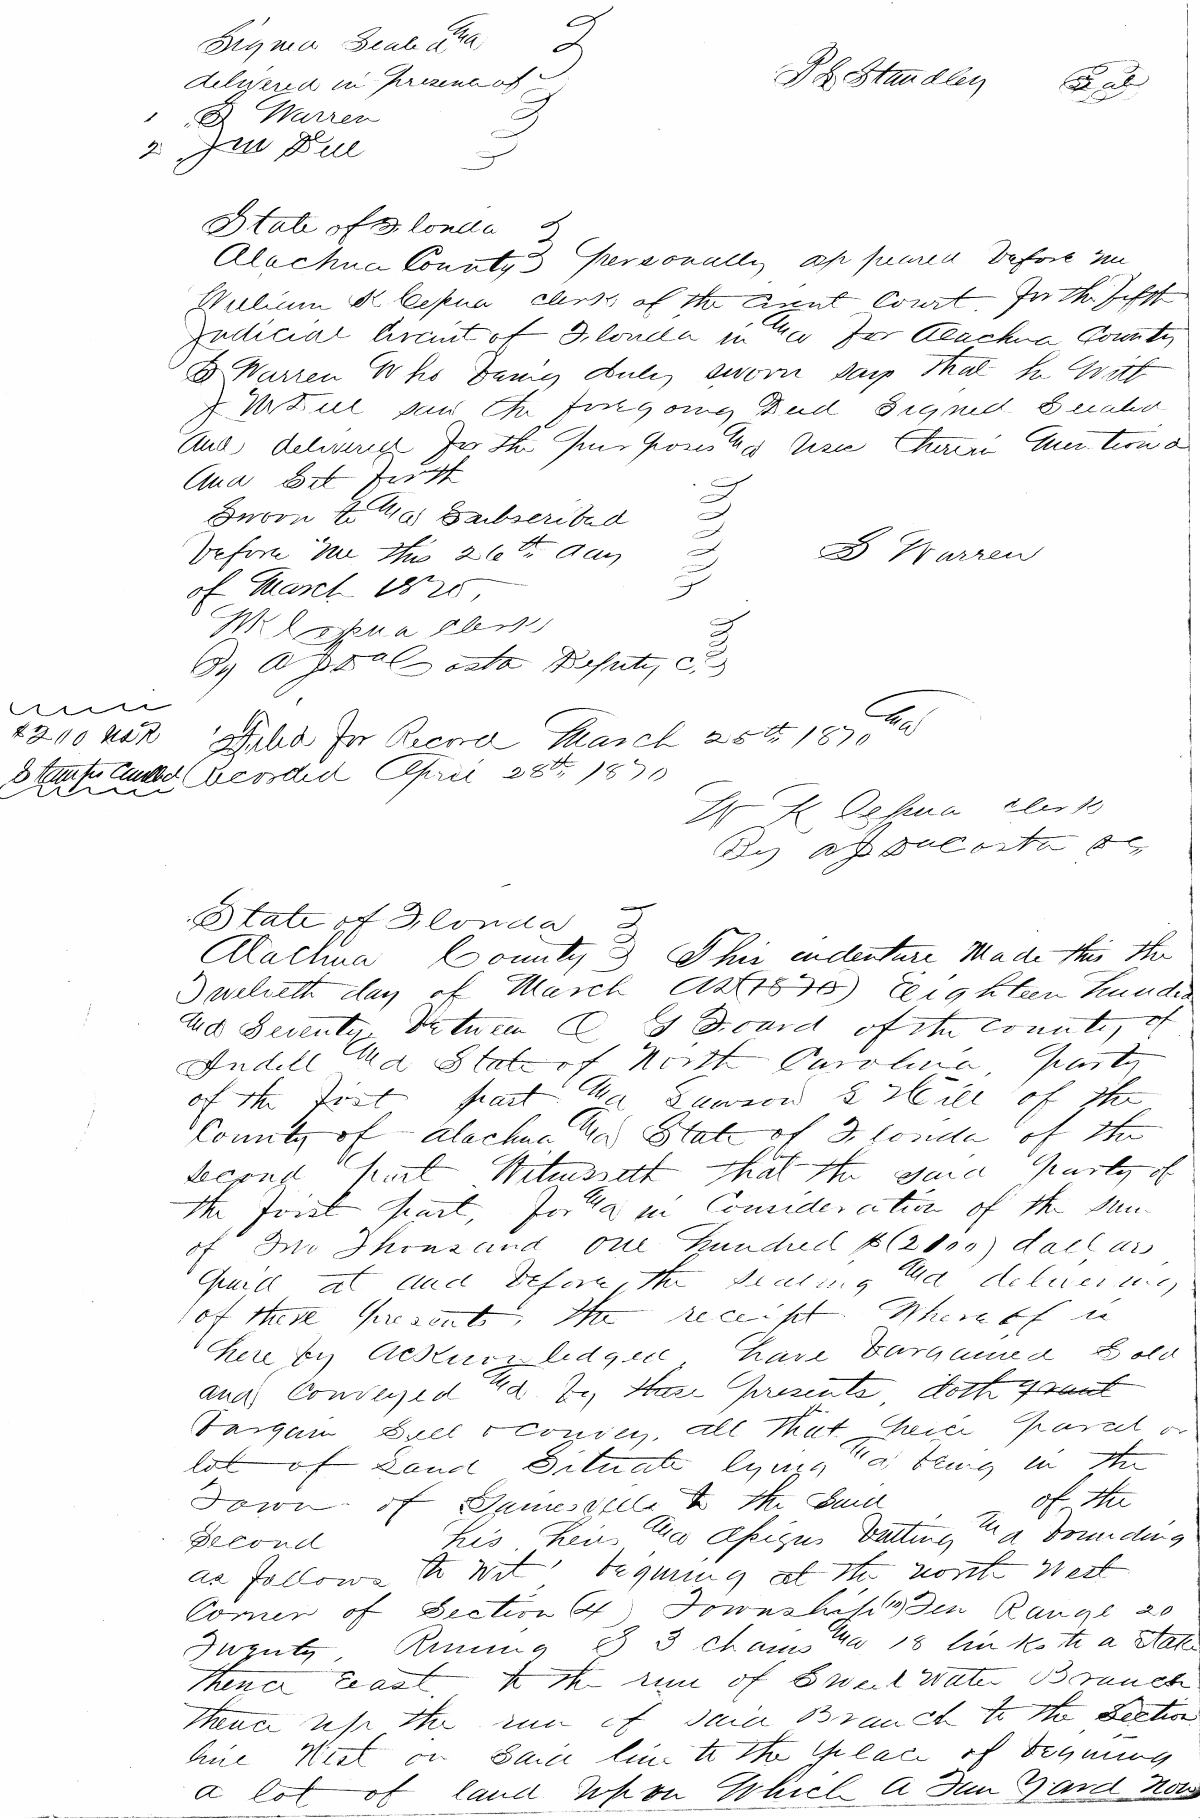 Signed Sealed and
delivered in presence of
P L Standley Seal
1 S Warren
2 J M Dell
State of Florida
Alachua County Personally appeared before me
William K Cessna clerk of the Circuit Court for the fifth
Judicial Circuit of Florida in and for Alachua County
S Warren Who being duly sworn says that he with
J M Dell saw the foregoing Deed Signed Sealed
and delivered for the purposes and uses therein mentiond
and Set forth
Sworn to and Subscribed
before me this 26th day
S Warren
of March 1870,
W K Cessna clerk
By Deputy C.
$2.00 USIR Filed for Record March 25th 1870 and
Stamps Canceld Recorded April 28th 1870
W K Cessna clerk
By DC
State of Florida
Alachua County This indenture Made this the
Twelveth day of March AD (1870) Eighteen hundred
and Seventy, between Q G Foard of the county of
Iredell and State of North Carolina, party
of the first part and Lawson Hill of the
County of Alachua and State of Florida of the
second part Witnesseth that the said party of
the first part, for and in Consideration of the sum
of Two Thousand one hundred $(2100) dollars
paid at and before the sealing and delivering
of these presents, the receipt Whereof is
here by Acknowledged, have bargained Sold
and Conveyed and by these presents, doth grant
bargain Sell & convey, all that peice parcel or
lot of Land Situate lying and being in the
Town of Gainesville to the Said of the
Second his heirs and assigns butting and bounding
as follows to wit: begining at the north West
Corner of Section (4) Township (10) Ten Range 20
Twenty, Running S 3 chains and 18 links to a Stake
thence East to the run of Sweet Water Branch
thence up the run of said Branch to the Section
line West on said line to the place of begining
a lot of land upon Which a Tan Yard now